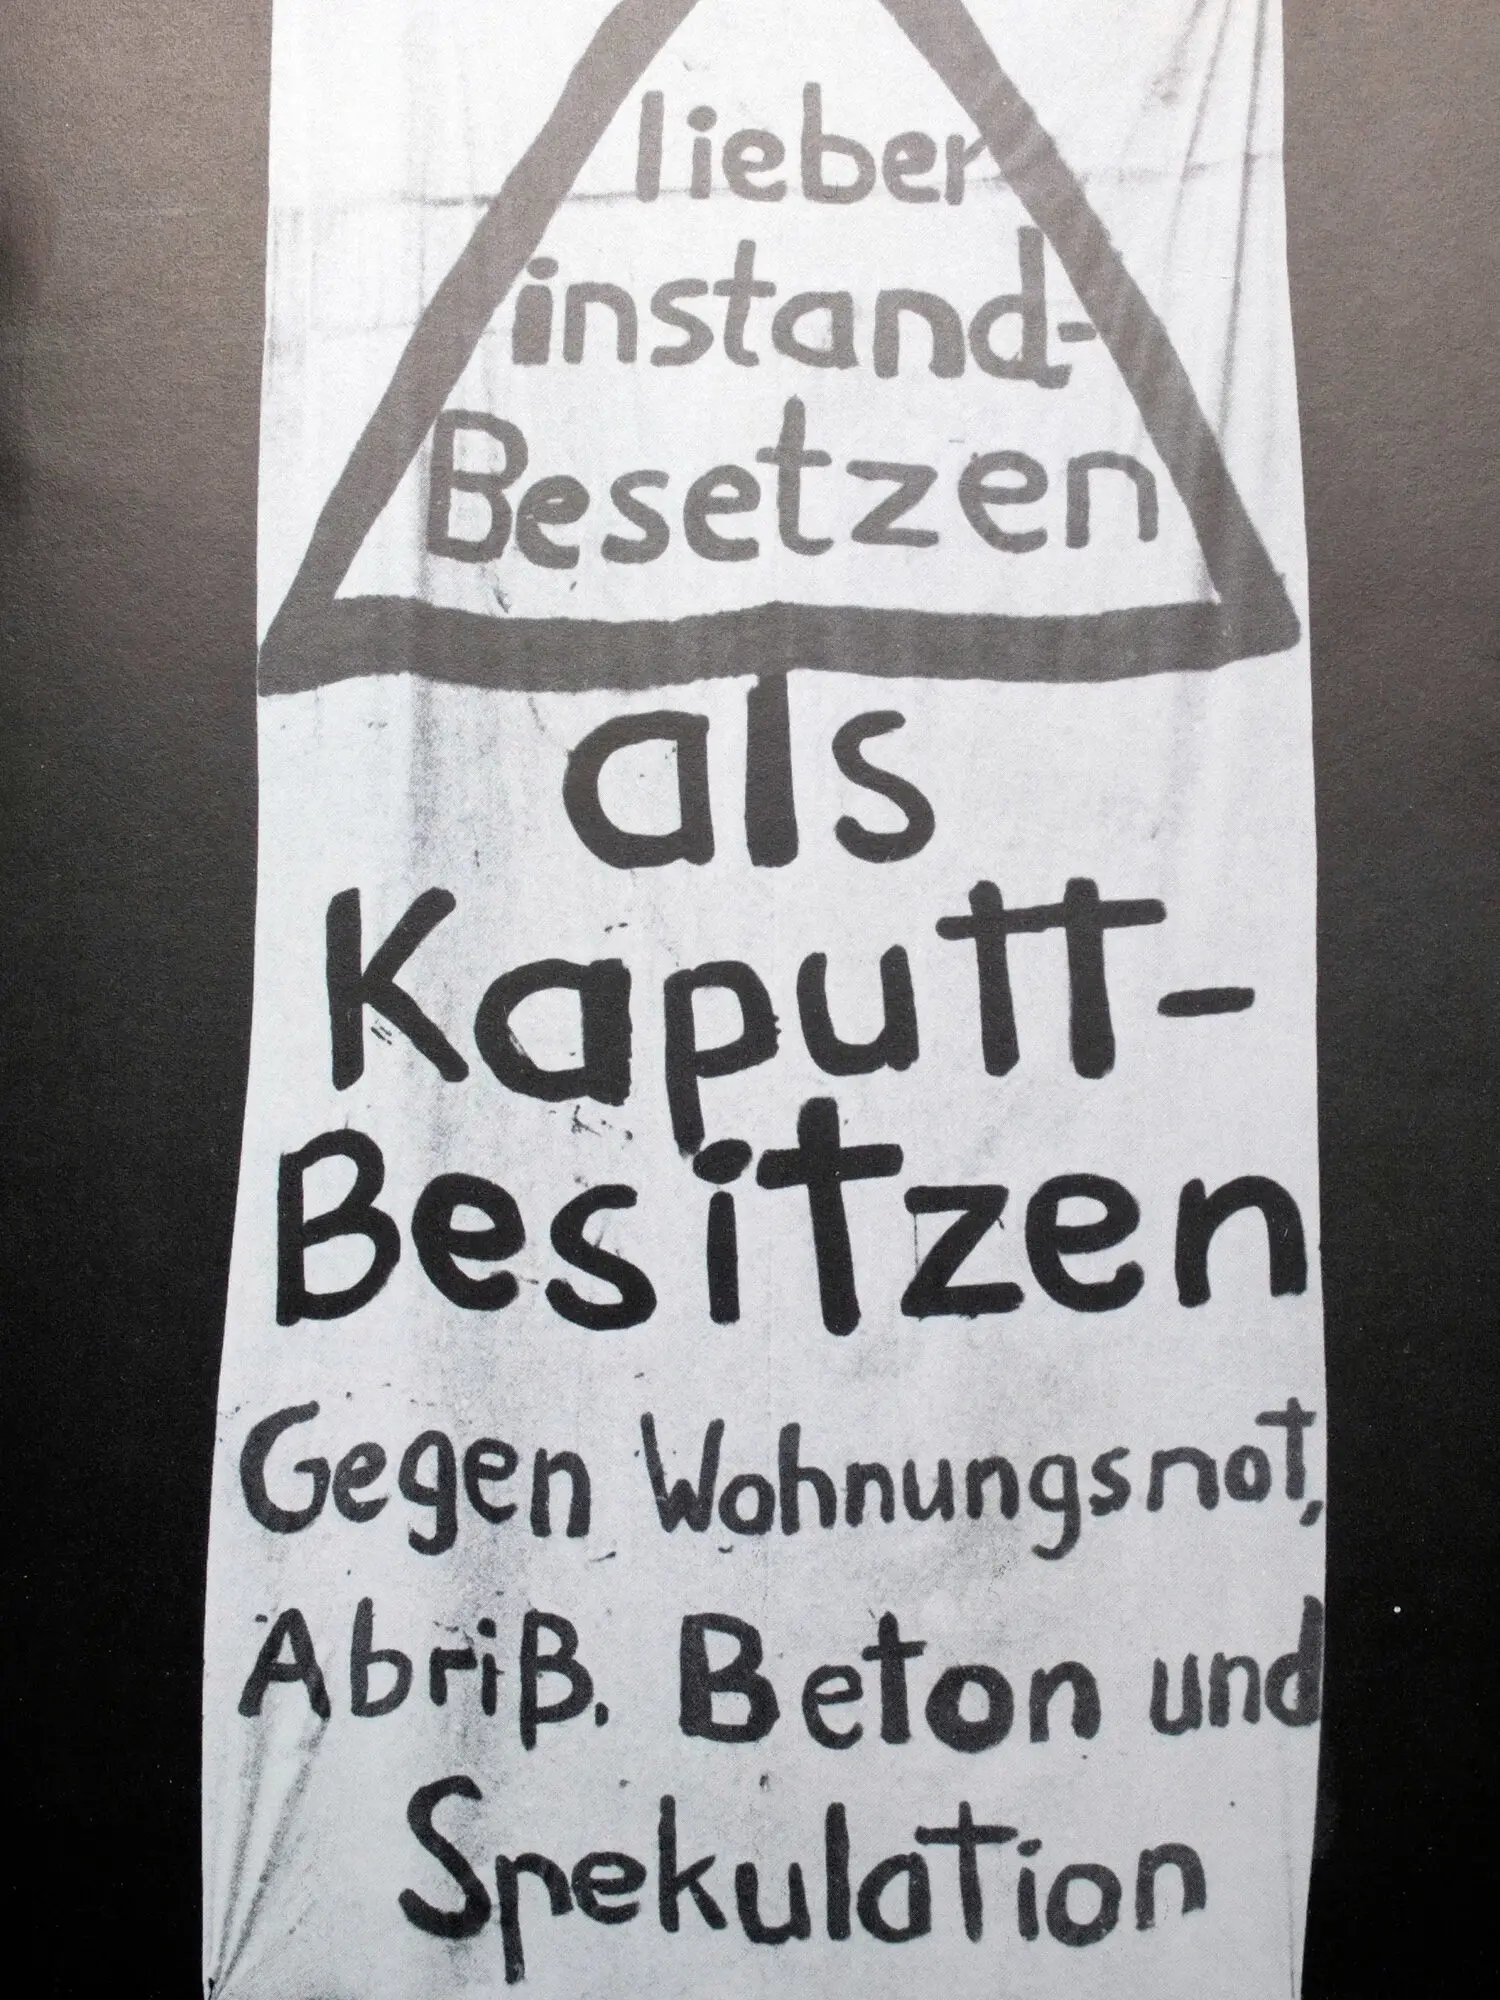 lieber
instand-
Besetzen
als
Kaputt-
Besitzen
Gegen Wohnungsnot,
Abriß, Beton und
Spekulation